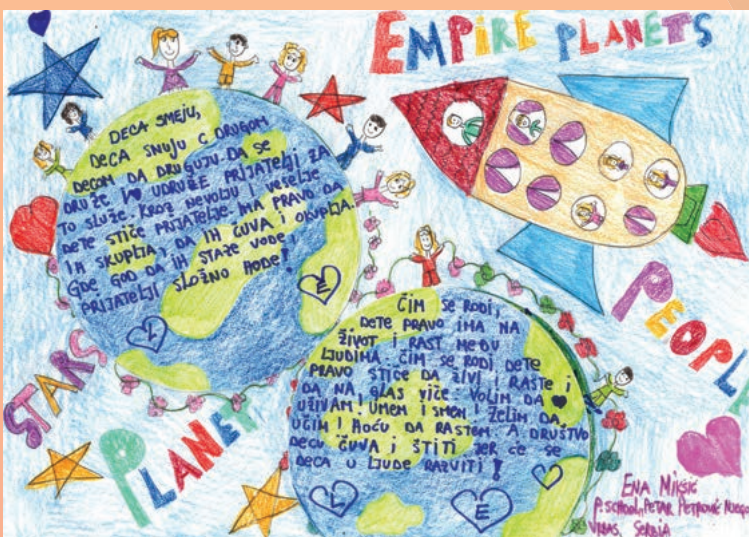 EMPIRE PLANETS
DECA SMEJU,
DECA SNUJU C DRUGOM
DECOM DA DRUGUJU. DA SE
DRUŽE I UDRUŽE PRIJATELJI ZA
TO SLUŽE. KROZ NEVOLJU I VESELJE
DETE STIČE PRIJATELJE. IMA PRAVO DA
IH SKUPLJA, DA IH ČUVA I OKUPLJA.
GDE GOD DA IH STAZE VODE,
PRIJATELJI SLOŽNO HODE!
L
E
ČIM SE RODI,
DETE PRAVO IMA NA
ŽIVOT I RAST MEĐU
LJUDIMA. ČIM SE RODI DETE
PRAVO STIČE DA ŽIVI I RASTE I
DA NA GLAS VIČE: VOLIM DA
UŽIVAM! UMEM I SMEM I ŽELIM DA
UČIM I HOĆU DA RASTEM. A DRUŠTVO
DECU ČUVA I ŠTITI JER ĆE SE
DECA U LJUDE RAZVITI!
L
E
L
STARS
PLANET
PEOPL
ENA MIKSIĆ
P. SCHOOL „PETAR PETROVIĆ NJEGO
VRBAS, SERBIA